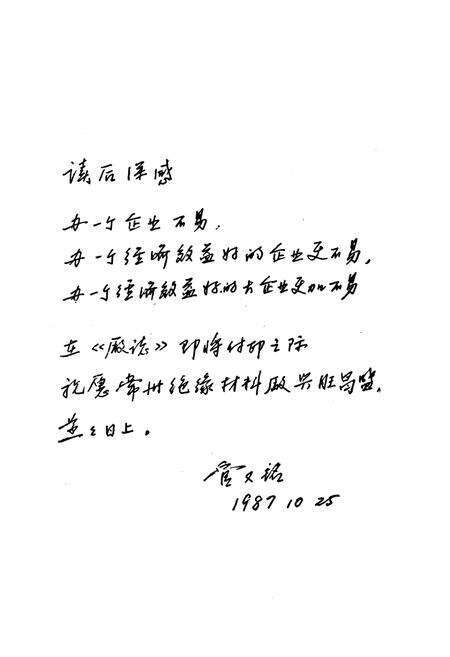 读后深感
办一个企业不易，
办一个经济效益好的企业更不易，
办一个经济效益好的大企业更加不易
在《厰誌》即将付印之际
祝愿常州绝缘材料厰兴旺昌盛，
蒸蒸日上。
管又
1987 10 25